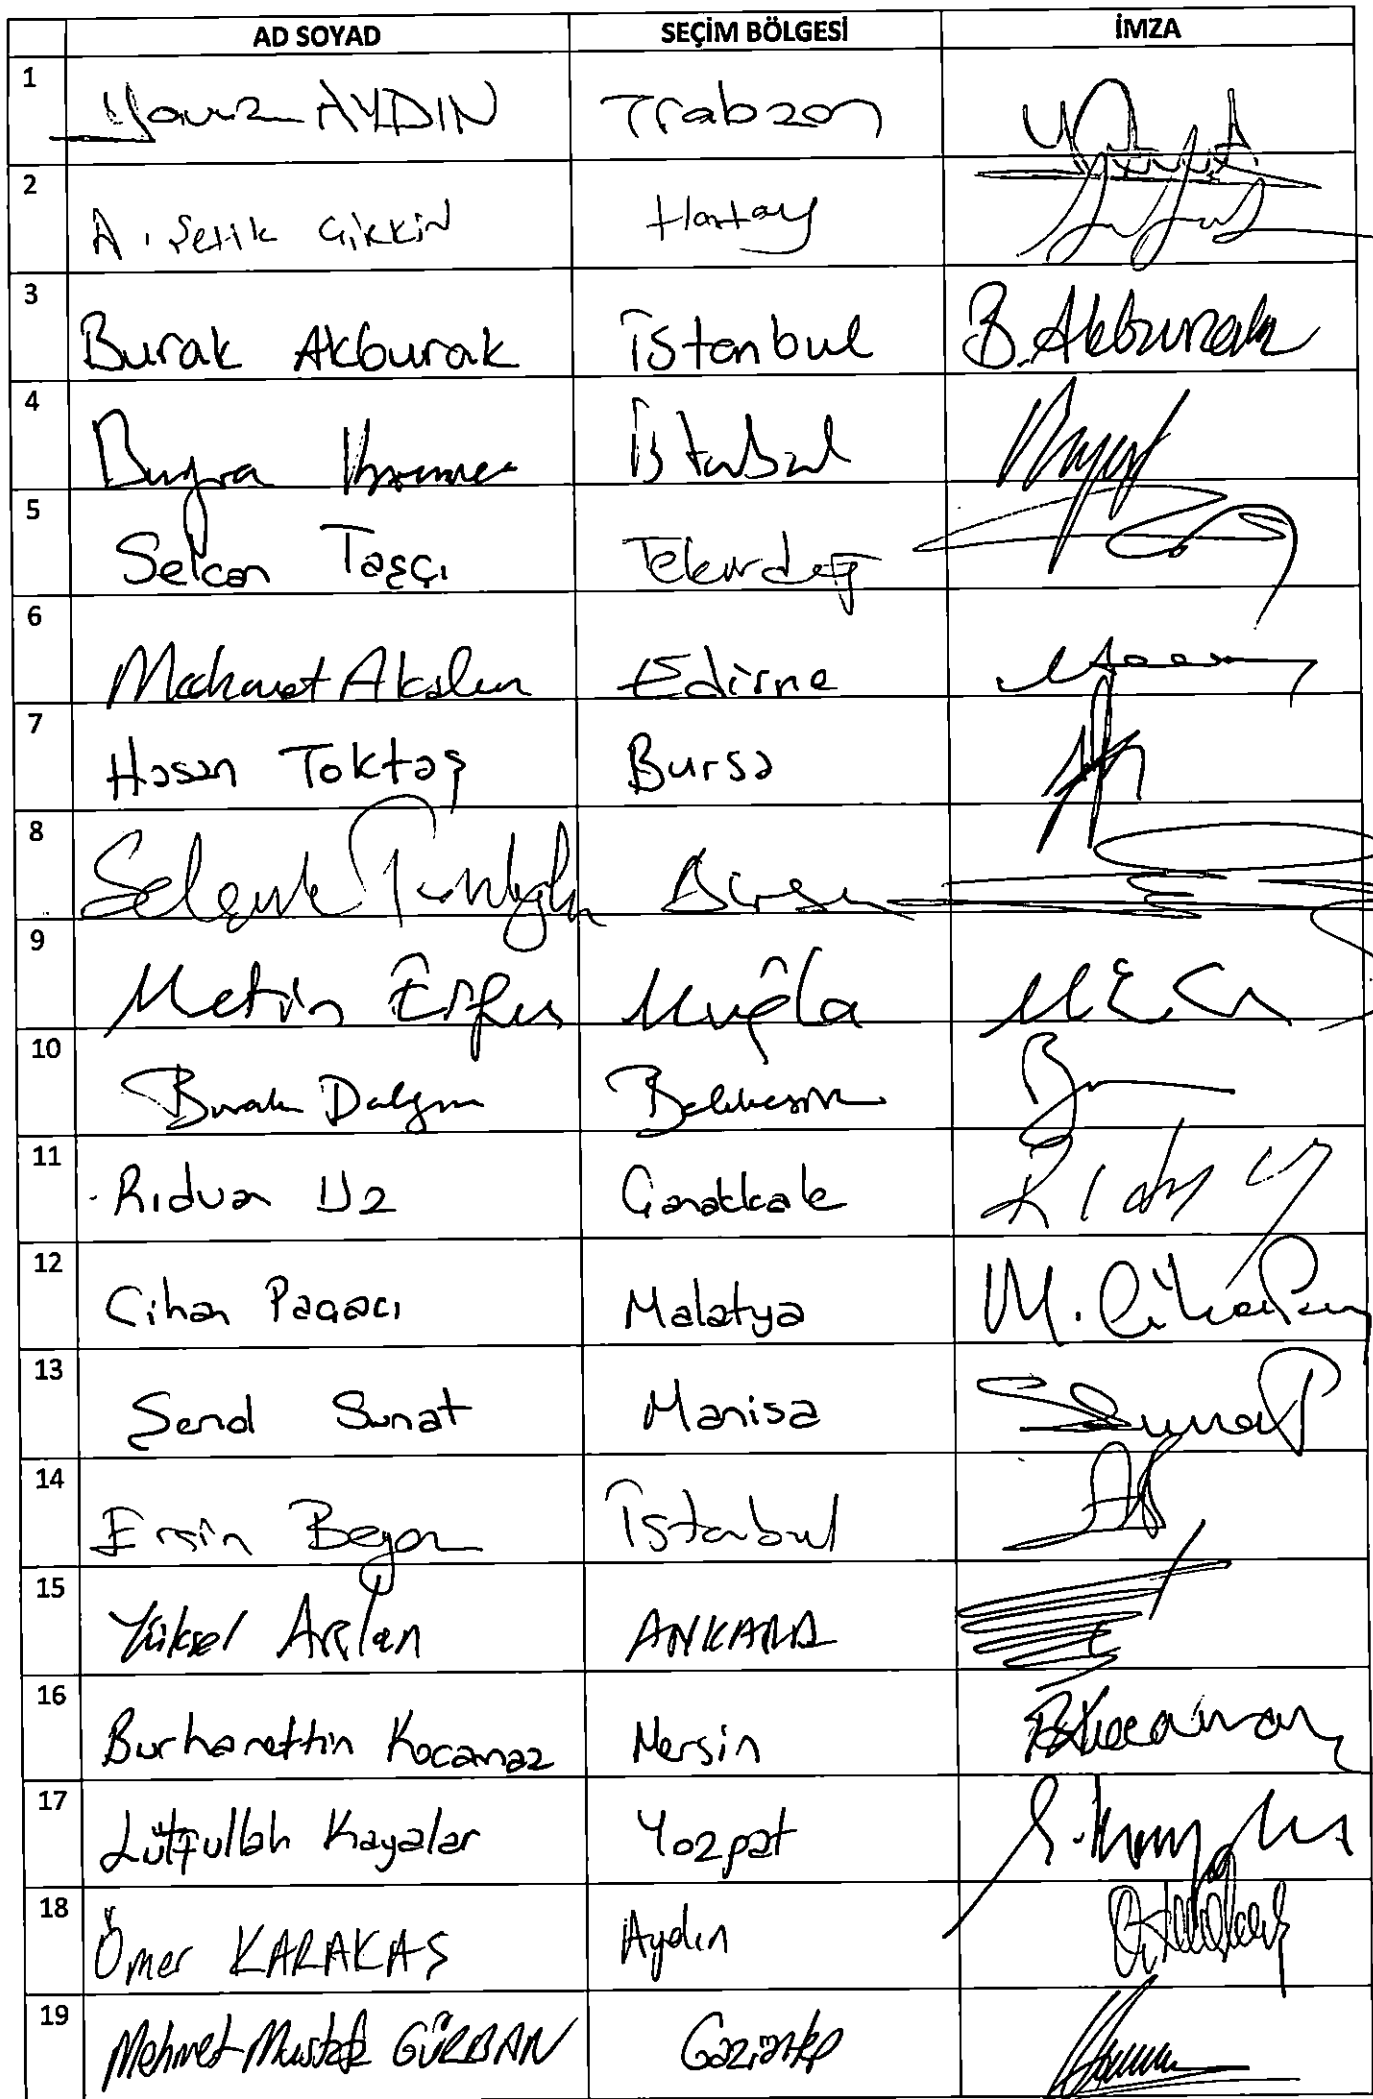 AD SOYAD SEÇİM BÖLGESİ İMZA
1 Yavuz AYDIN Trabzon
2 A. Şefik Çirkin Hatay
3 Burak Akburak İstanbul B.Akburak
4 Buğra İstanbul
5 Selcan Taşçı Tekirdağ
6 Mehmet Akalın Edirne
7 Hasan Toktaş Bursa
8 Selçuk Türkoğlu Bursa
9 Metin Ergun Muğla
10 Burak Dalgın Balıkesir
11 Rıdvan Uz Çanakkale
12 Cihan Paçacı Malatya
13 Şenol Sunat Manisa
14 Ersin Beyaz İstanbul
15 Yüksel Arslan ANKARA
16 Burhanettin Kocamaz Mersin
17 Lütfullah Kayalar Yozgat
18 Ömer KARAKAŞ Aydın
19 Mehmet Mustafa GÜRBAN Gaziantep